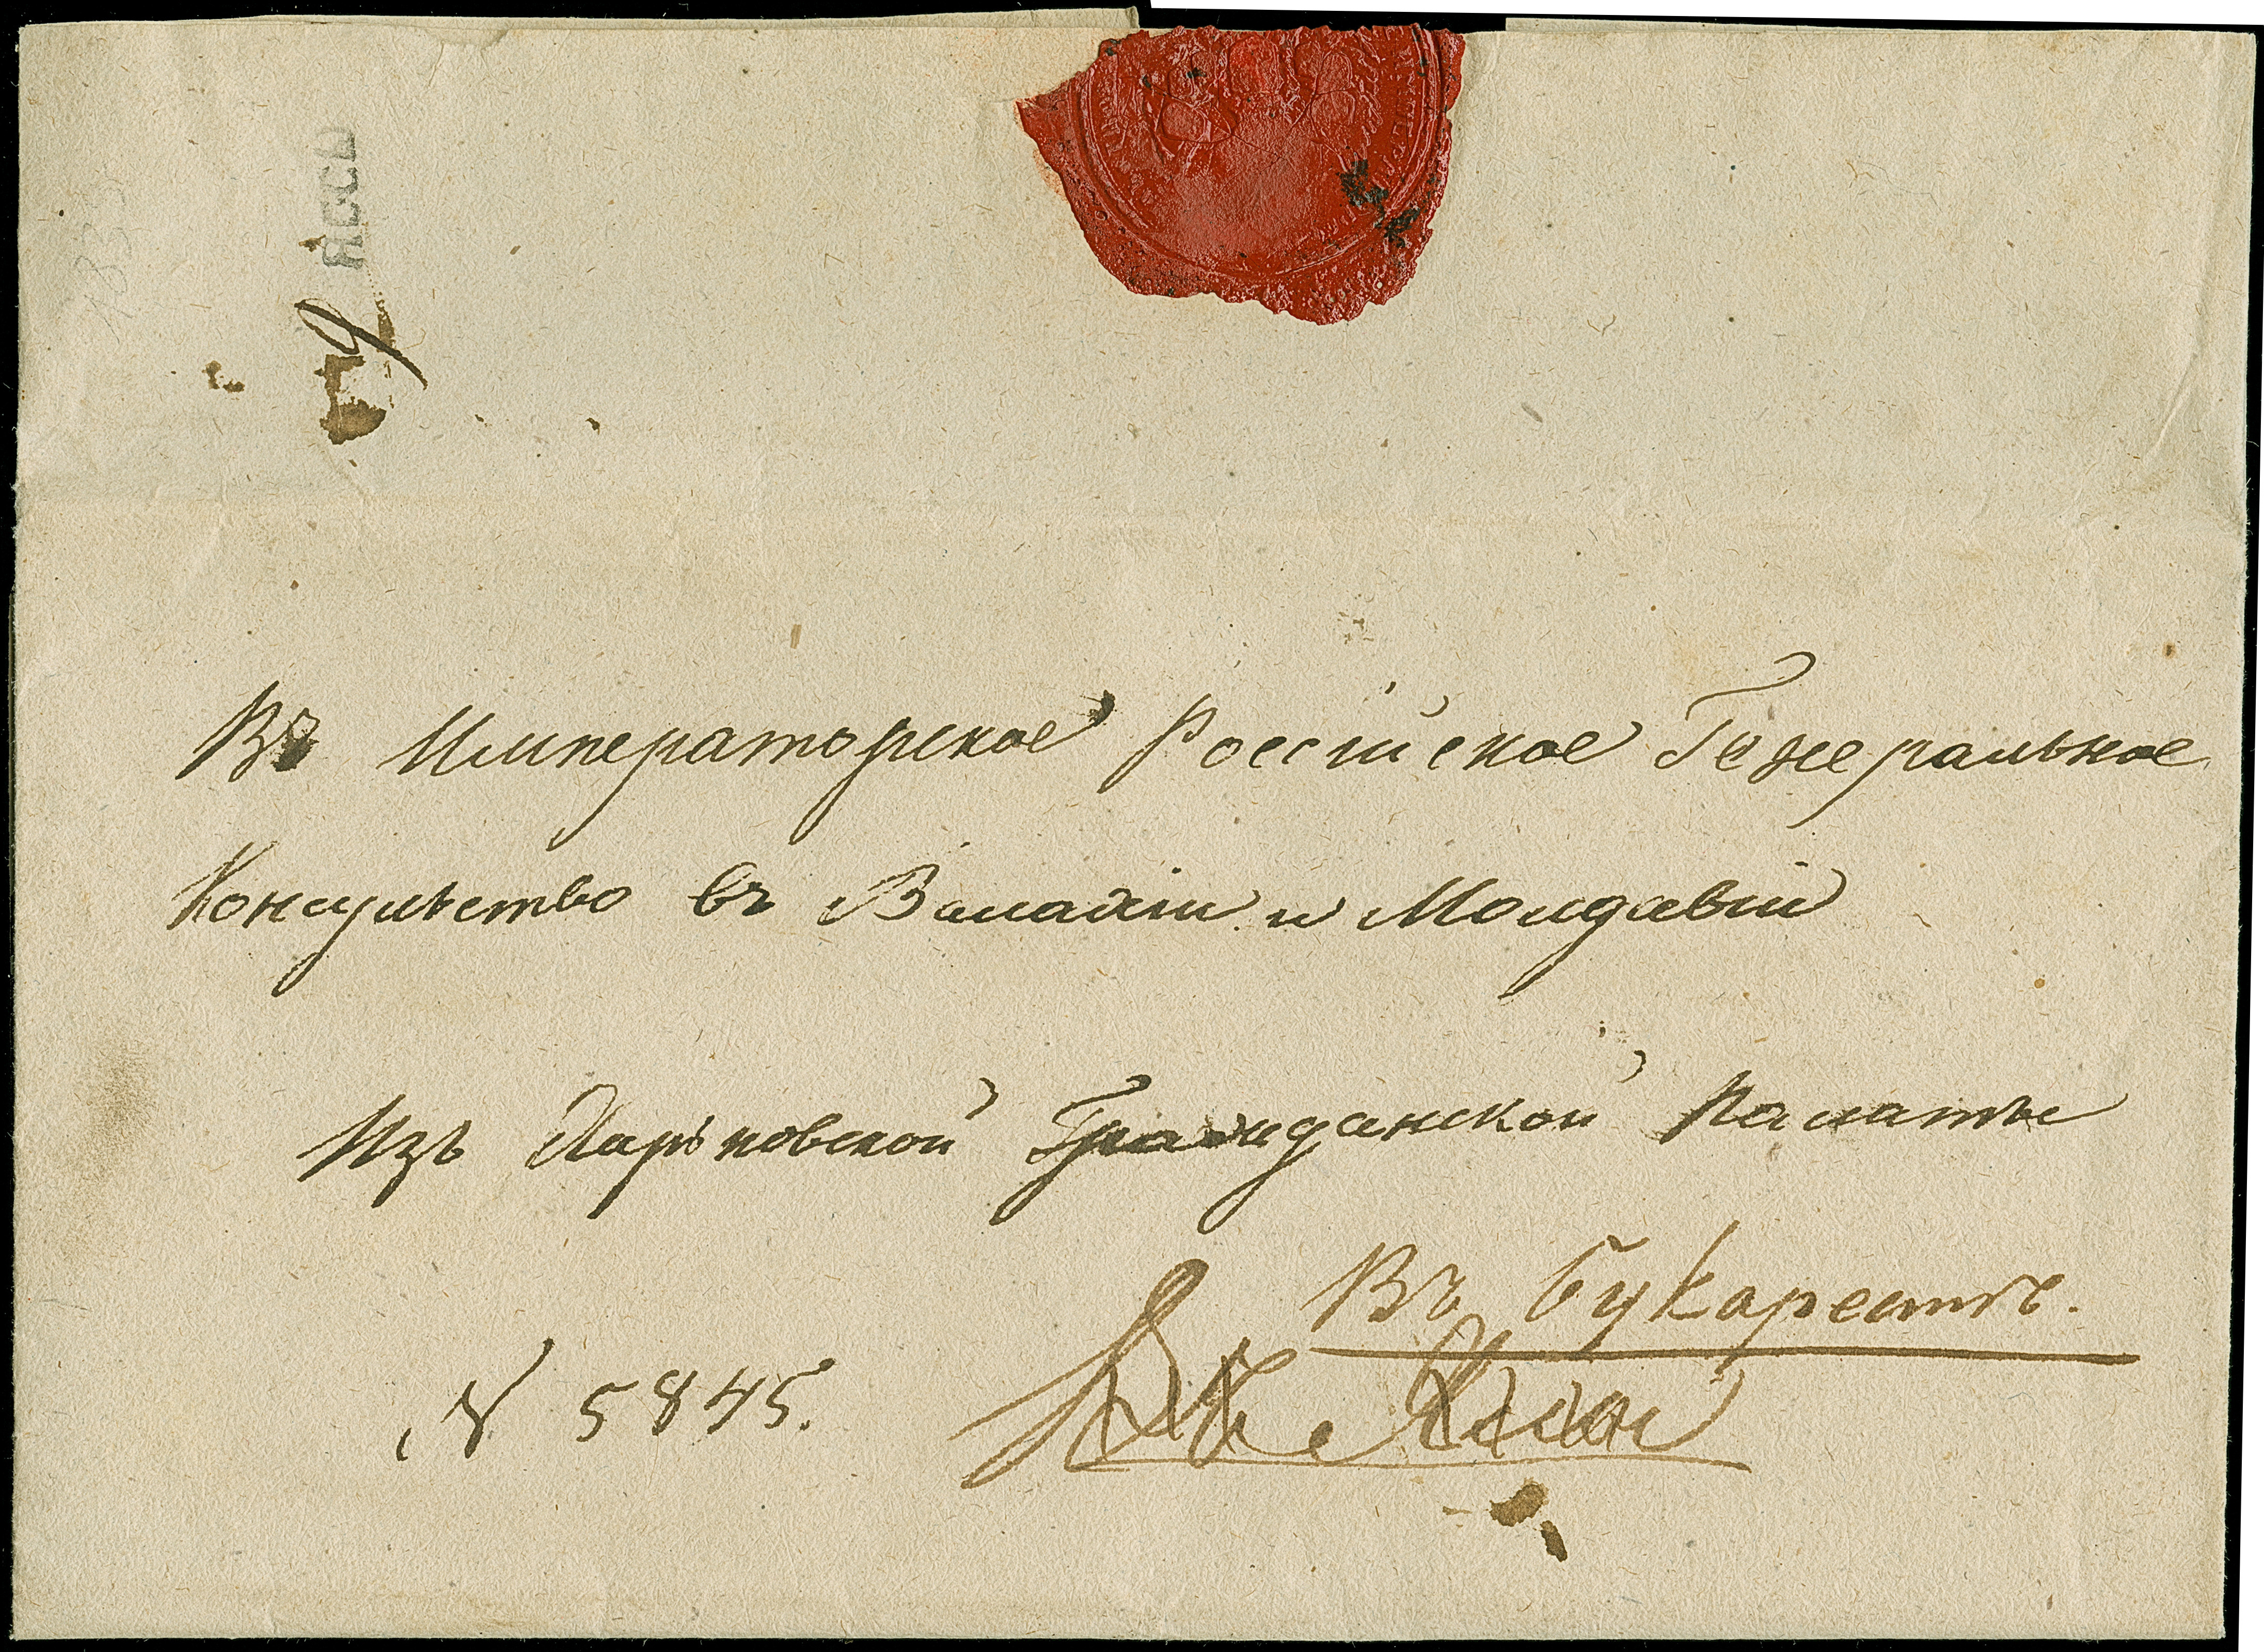 ЯССЫ
Въ Императорское Россійское Генеральное
Консульство въ Валахіи и Молдавіи
Изъ Харьковской Гражданской Палаты
Въ Букарестѣ.
№ 5845.